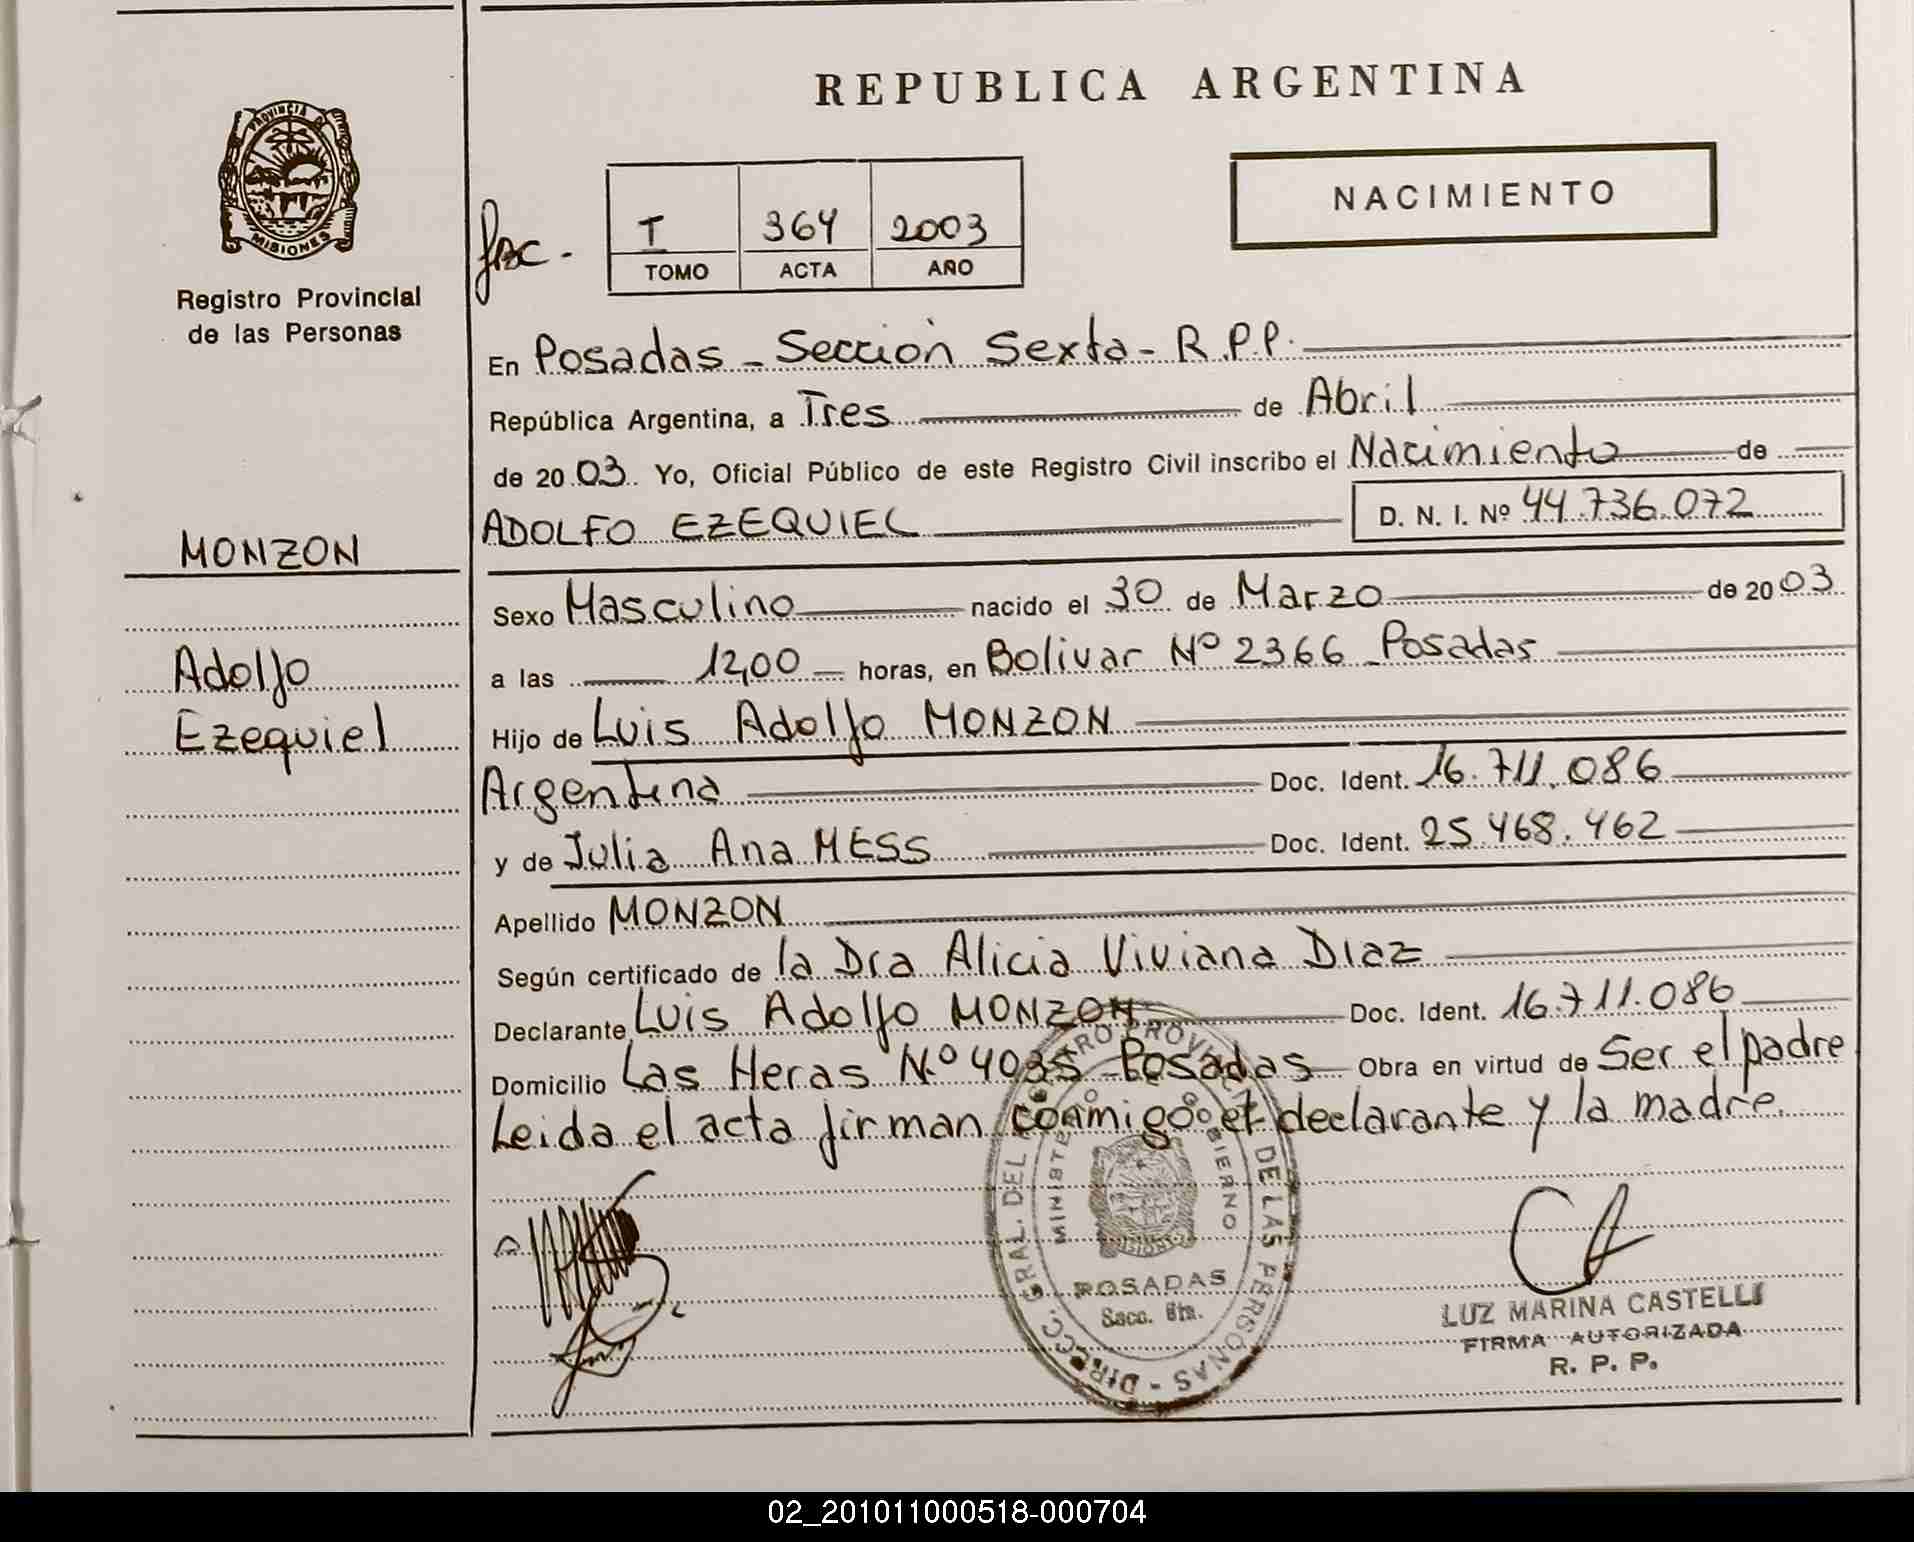 REPUBLICA ARGENTINA
PROVINCIA DE
MISIONES
Registro Provincial
de las Personas
MONZON
Adolfo
Ezequiel
I 364 2003
TOMO ACTA AÑO
NACIMIENTO
En Posadas - Sección Sexta - R.P.P.
República Argentina, a Tres de Abril
de 2003. Yo, Oficial Público de este Registro Civil inscribo el Nacimiento de
ADOLFO EZEQUIEL D. N. I. Nº 44.736.072
Sexo Masculino nacido el 30 de Marzo de 2003
a las 12,00 horas, en Bolivar Nº 2366 Posadas
Hijo de Luis Adolfo MONZON
Argentina Doc. Ident. 16.711.086
y de Julia Ana MESS Doc. Ident. 25.468.462
Apellido MONZON
Según certificado de la Dra Alicia Viviana Diaz
Declarante Luis Adolfo MONZON Doc. Ident. 16.711.086
Domicilio Las Heras N.º 4035 Posadas Obra en virtud de Ser el padre
Leida el acta firman conmigo el declarante y la madre.
DIRECC. GRAL. DEL REGISTRO PROVINCIAL DE LAS PERSONAS
MINISTERIO DE GOBIERNO
MISIONES
POSADAS
Secc. 6ta.
LUZ MARINA CASTELLI
FIRMA AUTORIZADA
R. P. P.
02_201011000518-000704